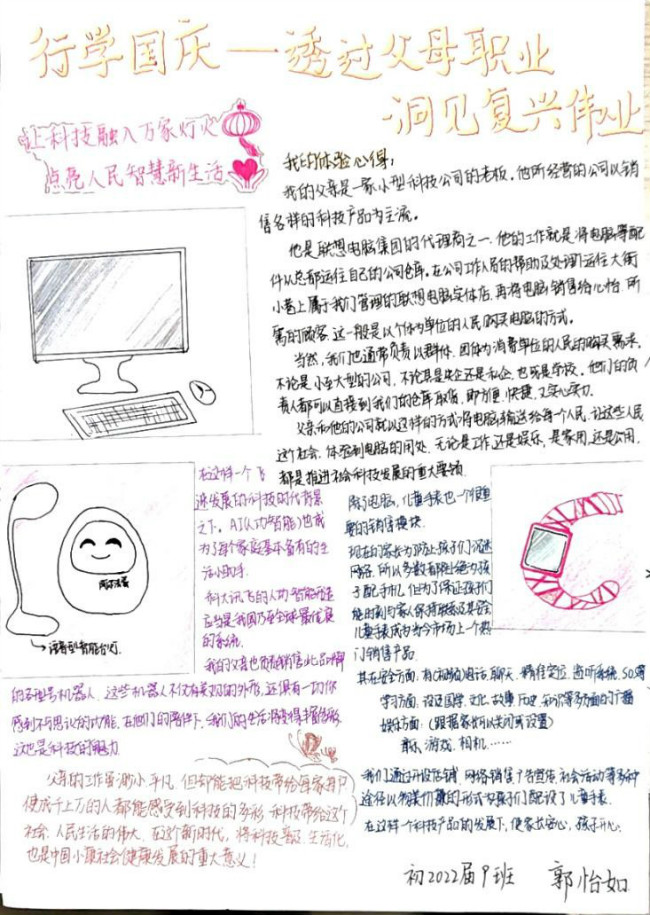 行学国庆——透过父母职业
·洞见复兴伟业
让科技融入万家灯火
点亮人民智慧新生活
我的体验心得:
我的父亲是一家小型科技公司的老板。他所经营的公司以销
售各样的科技产品为主流。
他是联想电脑集团的代理商之一，他的工作就是将电脑等配
件从总部运往自己的公司仓库。在公司工作人员的帮助及处理下运往大街
小巷上属于我们管理的联想电脑实体店，再将电脑销售给心怡、所
需的顾客，这一般是以个体为单位的人民购买电脑的方式。
当然，我们也通常负责以群体、团体为消费单位的人民的购买需求。
不论是小至大型的公司，不论其是央企还是私企，也或是学校。他们的负
责人都可以直接到我们的仓库取货，即方便、快捷、又实心实力。
父亲和他的公司就以这样的方式将电脑输送给每个人民，让这些人民
这个社会，体验到电脑的用处，无论是工作还是娱乐，是家用，还是公用，
都是推进社会科技发展的重大要领
在这样一个飞
速发展的科技时代背景
之下，AI(人功智能)也成
为了每个家庭基本备有的生
活小助手。
科大讯飞的人功智能
应当是我国乃至全球最优良
的系统。
我的父亲也负责销售此品牌
的各种型号机器人，这些机器人不仅有美观的外形，还具有一切你
感到不可思议的功能，在他们的陪伴下，我们的生活将变得丰富多彩
这也是科技的魅力
阿尔法蛋
→读書型智能台灯
除了电脑，儿童手表也一个很重
要的销售模块。
现在的家长为了防止孩子们沉迷
网络，所以多数都拒绝为孩
子配手机，但为了保证孩子们
能时刻与家人保持联系及其安全
儿童手表成为当今市场上一个热
门销售产品。
其在安全方面，有(视频)电话、聊天、精准定位、监听系统、SOS等
学习方面，设还国学、文化、故事、历史、知识等多方面的广播
娱乐方面：(跟据家长可以关闭或设置)
音乐、游戏、相机……
我们通过开设店铺、网络销售、广告宣传、社会活动等多种
途径以物美价廉的形式为孩子们配设了儿童手表。
在这样一个科技产品的发展下，使家长安心，孩子开心。
父亲的工作虽渺小、平凡，但却能把科技带给每家每户
使成千上万的人都能感受到科技的多彩，科技带给这个
社会、人民生活的伟大，在这个新时代，将科技高级、生活化，
也是中国小康社会健康发展的重大意义！
初2022届9班 郭怡如